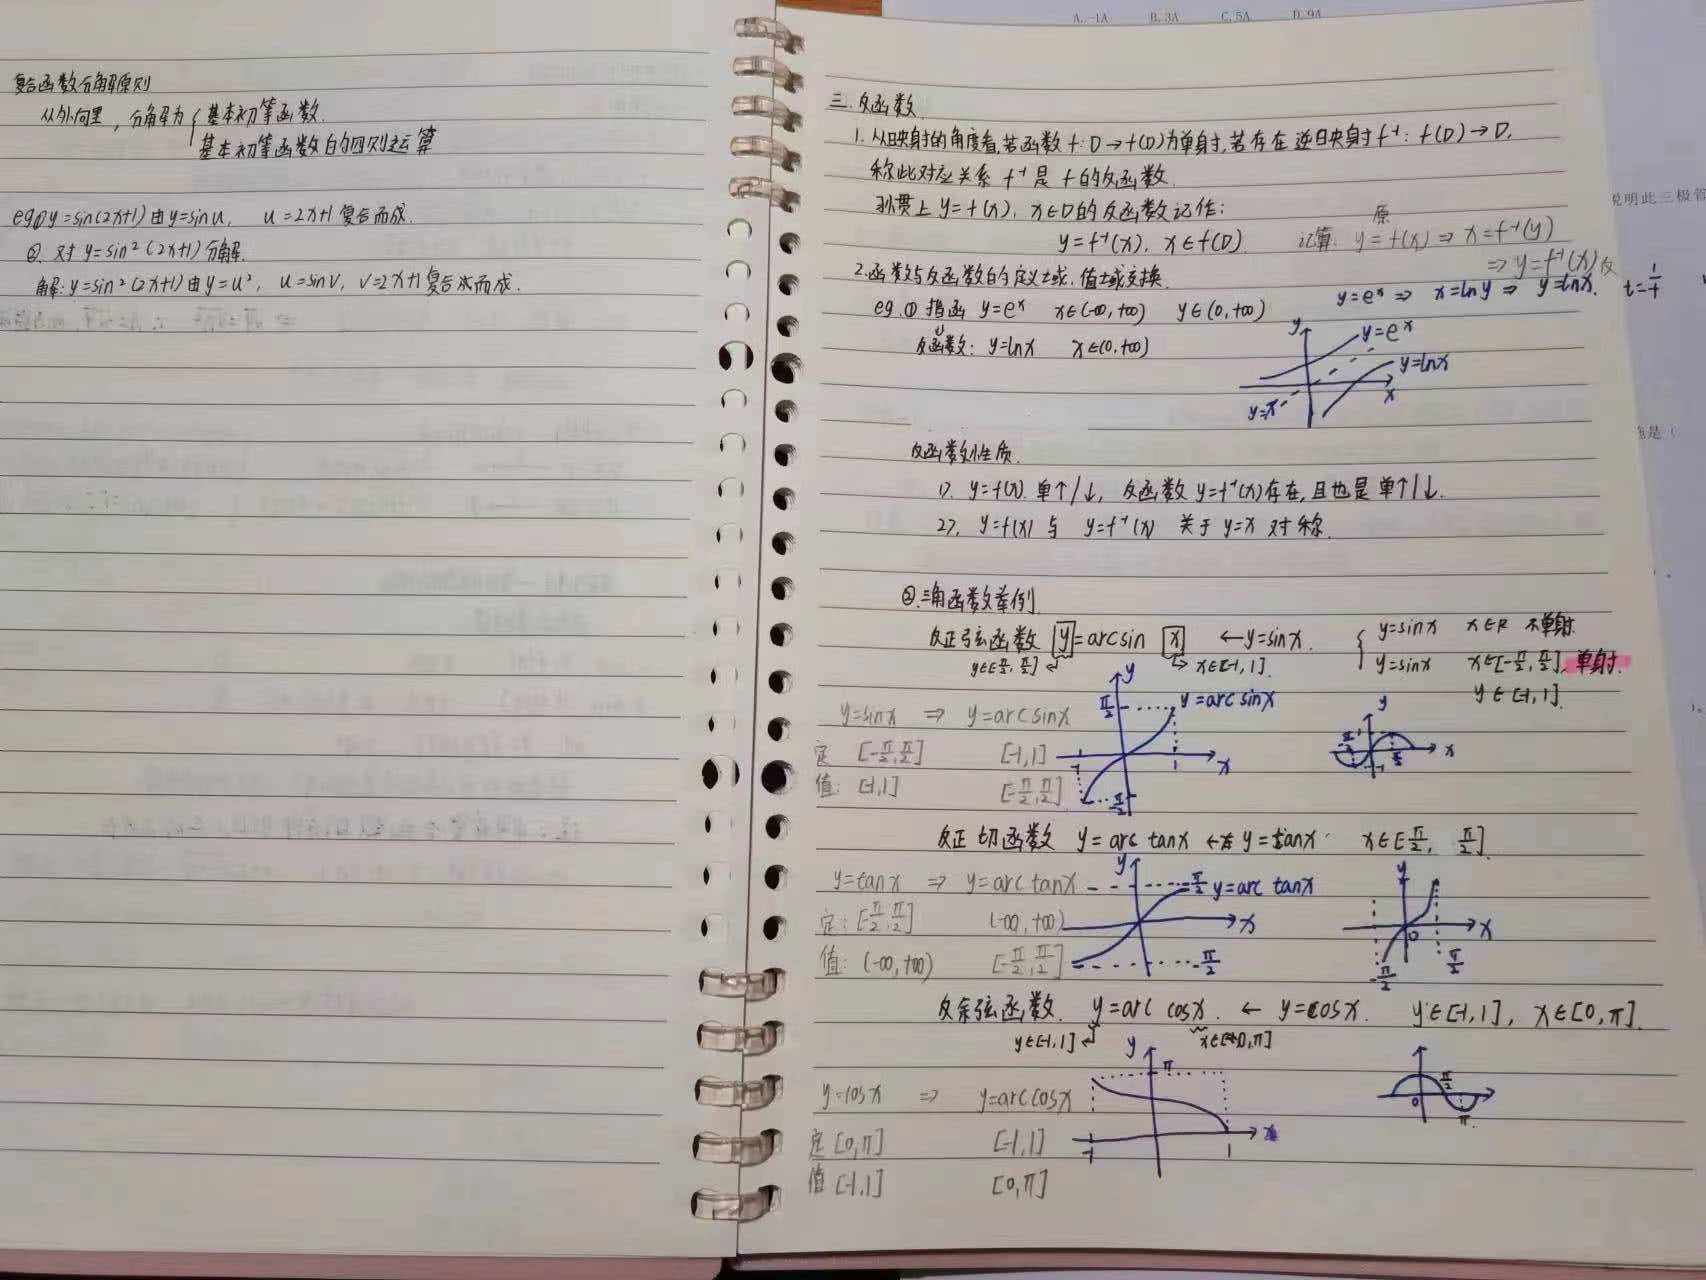 复合函数分解原则
从外向里，分解为{基本初等函数.
基本初等函数的四则运算
eg①y=sin(2x+1)由y=sinu, u=2x+1复合而成.
②. 对y=sin²(2x+1)分解.
解:y=sin²(2x+1)由y=u², u=sinv, v=2x+1复合而成.
A.-1A B.3A C.5A D.9A
三.反函数.
1.从映射的角度看,若函数f:D→f(D)为单射,若存在逆映射f⁻¹: f(D)→D.
称此对应关系f⁻¹是f的反函数.
习惯上y=f(x), x∈D的反函数记作:
y=f⁻¹(x), x∈f(D).
原
计算: y=f(x)⇒x=f⁻¹(y)
⇒y=f⁻¹(x)反
2.函数与反函数的定义域,值域交换.
y=eˣ⇒ x=lny⇒ y=lnx.
eg.①指函 y=eˣ x∈(-∞,+∞) y∈(0,+∞)
反函数: y=lnx x∈(0,+∞)
y
y=eˣ
y=lnx
x
y=x
反函数性质.
1). y=f(x).单↑/↓, 反函数y=f⁻¹(x)存在,且也是单↑/↓.
2). y=f(x)与 y=f⁻¹(x) 关于y=x对称.
②.三角函数举例.
反正弦函数 y=arcsin x ←y=sinx.
{y=sinx x∈R 不单射.
y=sinx x∈[-π/2,π/2].单射.
y∈[-1,1].
y∈[-π/2,π/2] x∈[-1,1].
y=sinx ⇒ y=arcsinx
定 [-π/2,π/2] [-1,1]
值: [-1,1] [-π/2,π/2]
y
π/2
y=arcsinx
-1 1 x
-π/2
y
x
反正切函数 y=arc tanx ← y=tanx. x∈[-π/2, π/2].
y=tanx ⇒ y=arctanx
定: [-π/2,π/2] (-∞,+∞)
值: (-∞,+∞) [-π/2,π/2]
y
π/2 y=arc tanx
x
-π/2
y
0 x
-π/2 π/2
反余弦函数. y=arc cosx. ← y=cosx. y∈[-1,1], x∈[0,π].
y∈[-1,1] x∈[0,π]
y=cosx ⇒ y=arccosx
定[0,π] [-1,1]
值[-1,1] [0,π]
y
π
-1 1 x
0 π/2 π
说明此三极管